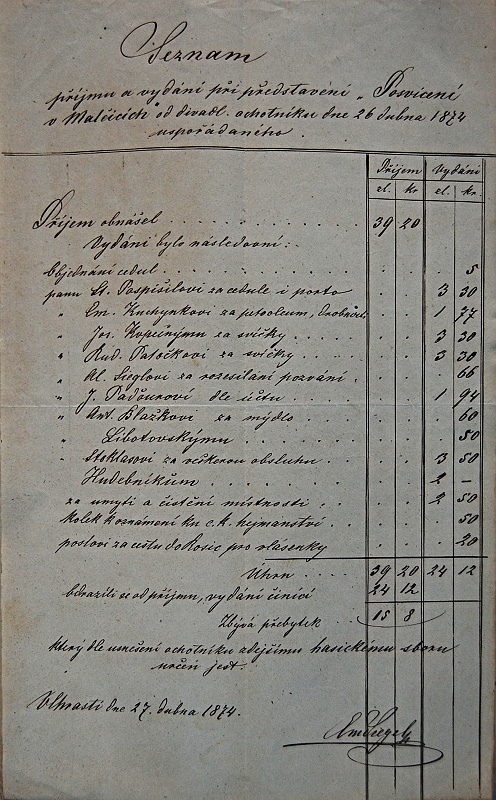 Seznam
příjmu a vydání při představení „Posvícení
v Malčicích" od divadl. ochotníku dne 26 dubna 1874
uspořádaného.
Příjem Vydání
zl. kr zl. kr.
Příjem obnášel . . . . . . . . . . . 39 20
Vydání bylo následovní:
Objednání cedul . . . . . . . . . . 5
panu St. Pospíšilovi za cedule i porto . . 3 30
„ Em. Kuchynkovi za petroleum, . . 1 77
„ Jos. Kopeckýmu za svíčky . . . . . 3 30
„ Rud. Patočkovi za svíčky . . . . . 3 30
„ Al. Sieglovi za rozesílání pozvání . . . . 66
„ J. Paďourovi dle účtu . . . . . 1 94
„ Ant. Blažkovi za mýdlo . . . . 60
„ Libotovskýmu . . . . . . . . 50
„ Stoklasovi za veškerou obsluhu . . . 3 50
Hudebníkům . . . . . . . 2 –
za umytí a čistění místnosti . . . . 2 50
Kolek k oznámení ku c. k. hejmanství . . . 50
poslovi za cestu do Rosic pro vlásenky . . 20
Úhrn . . . . 39 20 24 12
odrazíli se od příjmu, vydání činící 24 12
Zbývá přebytek . . . 15 8
který dle usnešení ochotníku zdejšímu hasickému sboru
určen jest.
V Chrasti dne 27. dubna 1874.